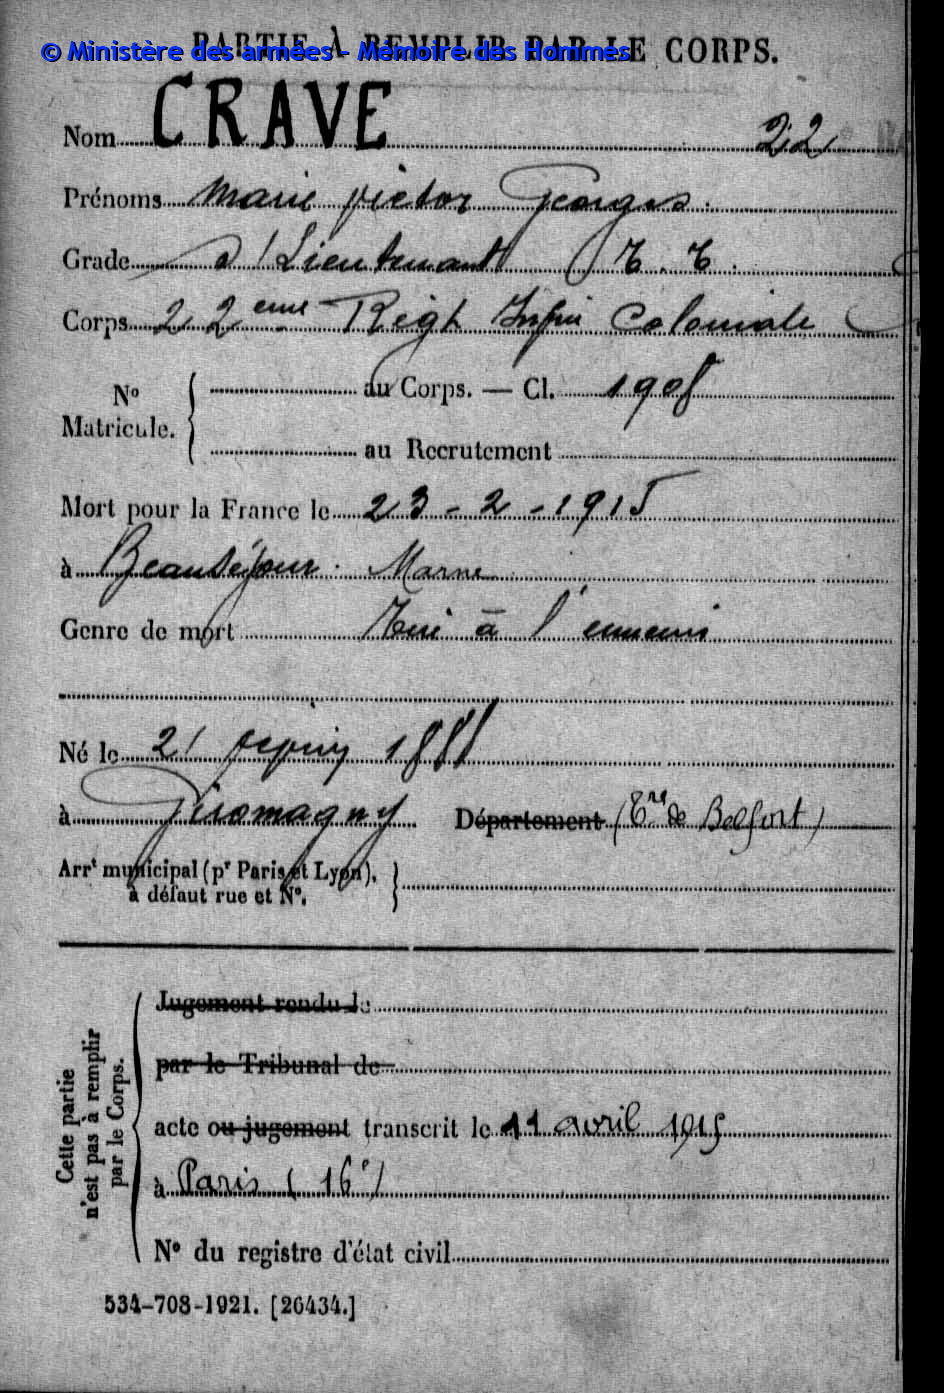 PARTIE À REMPLIR PAR LE CORPS.
© Ministère des armées - Mémoire des Hommes
Nom CRAVE 22
Prénoms Marie Victor Georges
Grade S/Lieutenant T.T.
Corps 22eme Régt Infie Coloniale
No Matricule. { au Corps. — Cl. 1908
au Recrutement
Mort pour la France le 23-2-1915
à Beauséjour. Marne
Genre de mort Tué à l'ennemi
Né le 21 1888
à Giromagny Département (Tre de Belfort)
Arrt municipal (pr Paris et Lyon),
à défaut rue et No.
Cette partie
n'est pas à remplir
par le Corps.
Jugement rendu le
par le Tribunal de
acte ou jugement transcrit le 11 avril 1915
à Paris (16e)
No du registre d'état civil
534-708-1921. [26434.]